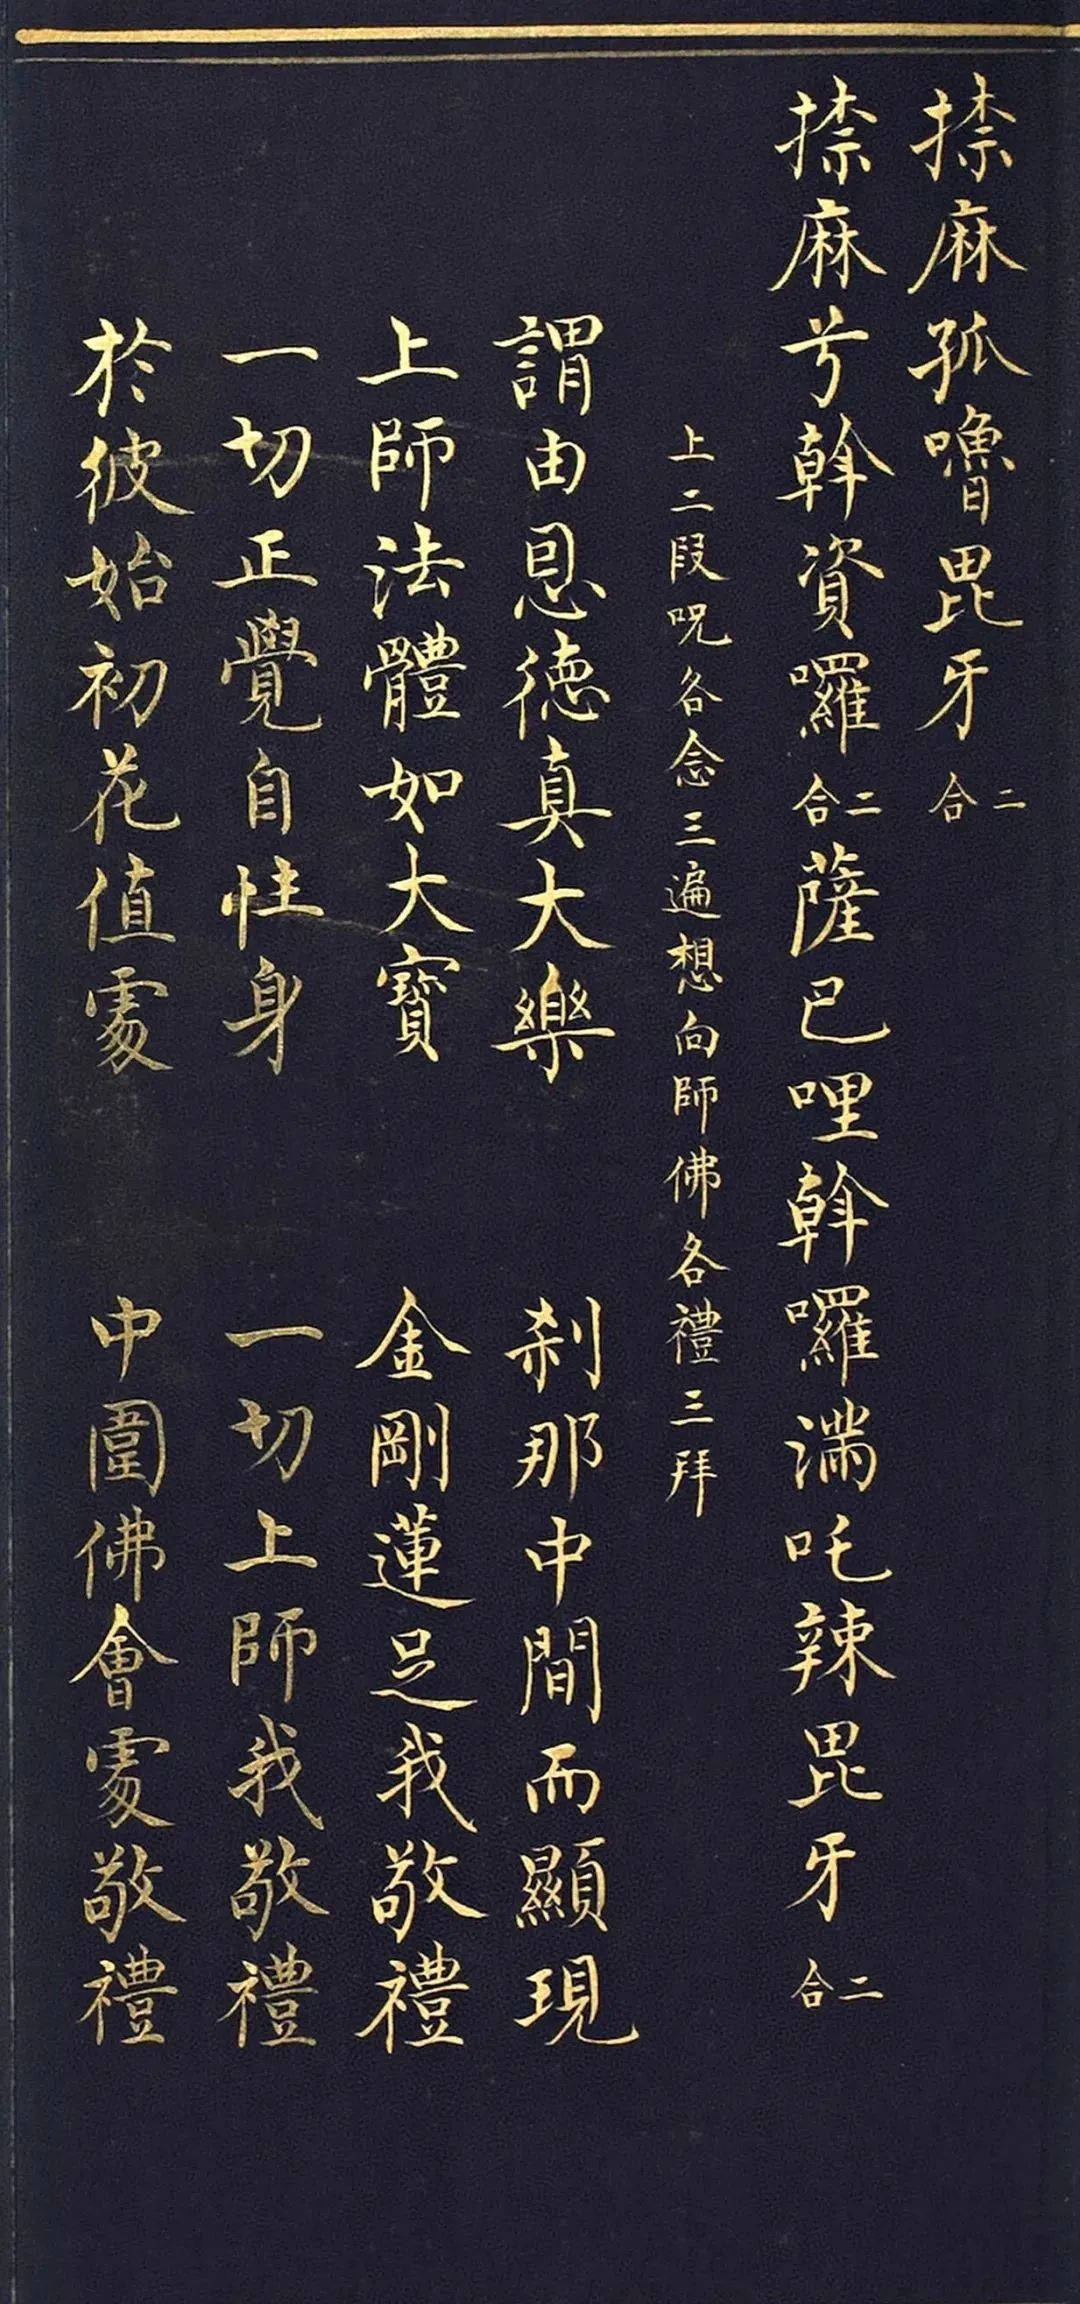 捺麻孤嚕毘牙二合
捺麻兮斡資囉二合薩巴哩斡囉湍吒辣毘牙二合
上二段呪各念三遍想向師佛各禮三拜
謂由恩德真大樂　刹那中間而顯現
上師法體如大寶　金剛蓮足我敬禮
一切正覺自性身　一切上師我敬禮
於彼始初花值處　中圍佛會處敬禮